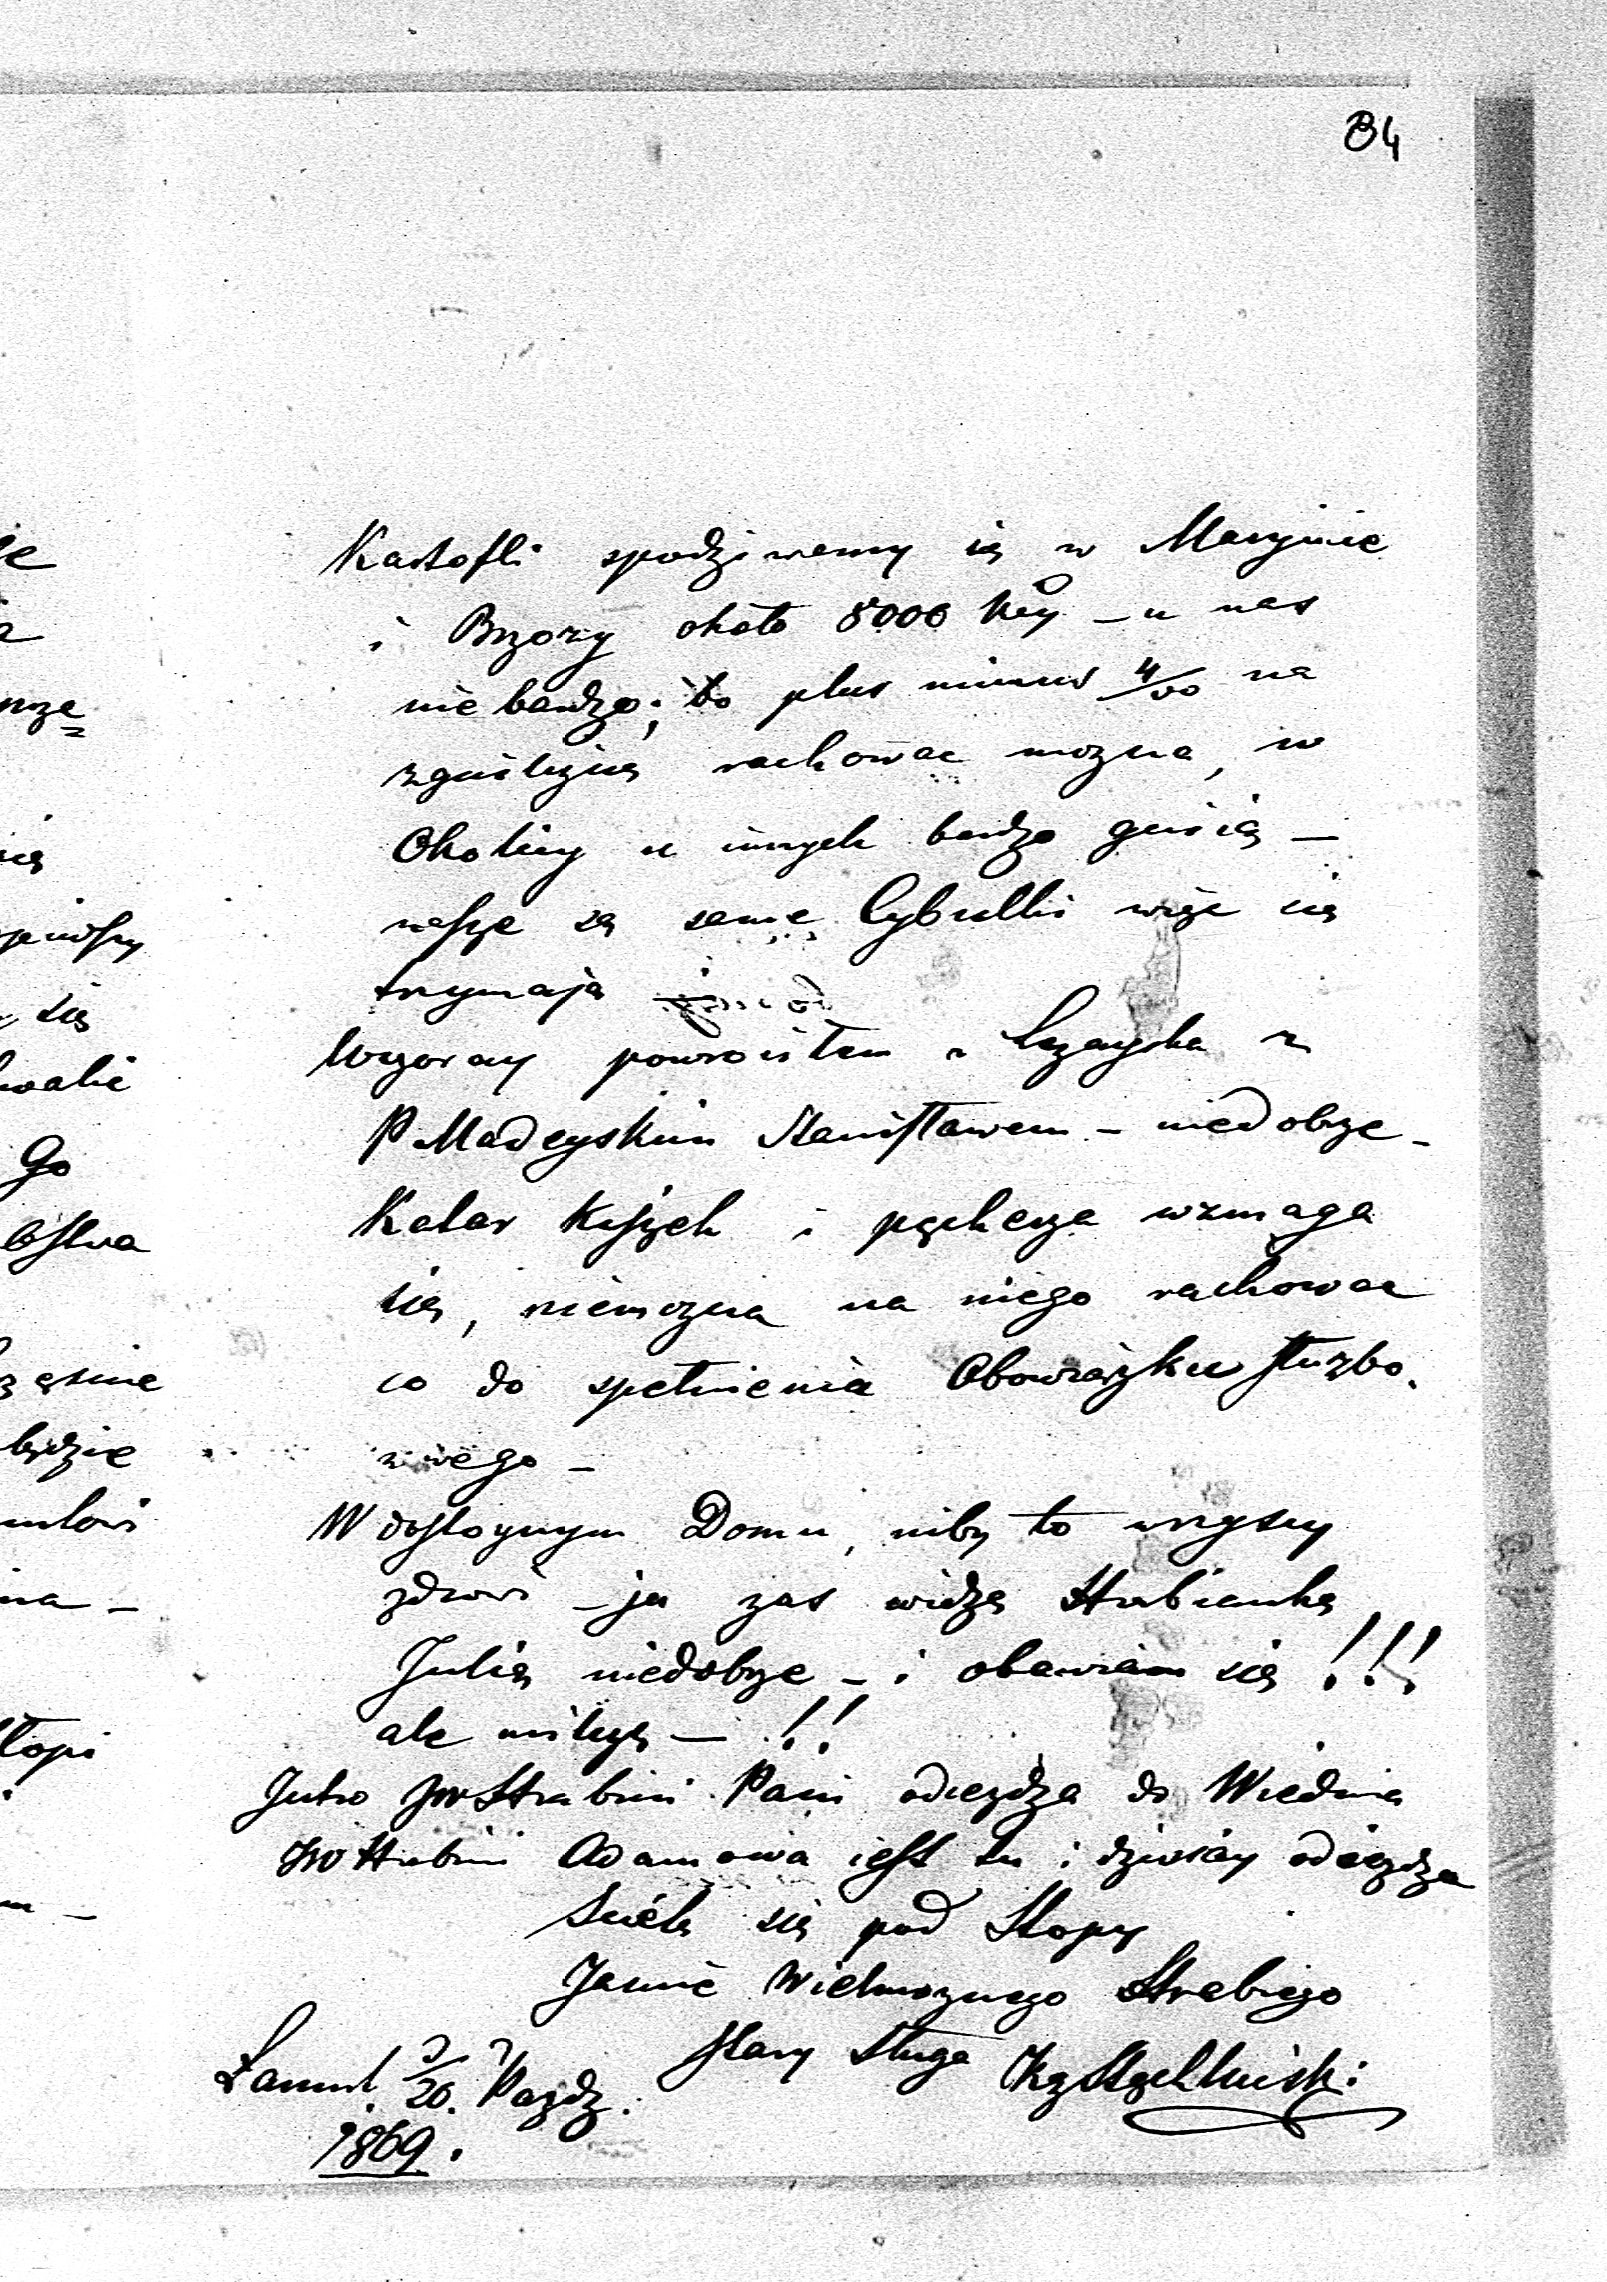 84
Kartofli spodziwamy się w Maryinie
i Brzozy około 8000 Kcy – u nas
nie bardzo; to plus minus 4/00 na
zgnilizną rachowac mozna, w
Okolicy u innych bardzo gniią –
nasze są same Cybulki więc się
trzymaią
Wczoray powrociłem z Leżayska z
P Madeyskim Stanisławem – niedobrze –
Katar Kiszek i pęcherza wzmaga
się, niemozna na niego rachowac
co do spełnienia Obowiązku służbo
wego –
W dostoynym Domu, niby to wszyscy
zdrowi – ja zas widzę Hrabiankę
Julię niedobrze – i obawiam się !!!
ale milczę – !!
Jutro JW Hrabini Pani odiezdza do Wiednia
JW Hrabini Adamowa iest tu i dzisiay odiezdza
Sciele się pod Stopy
Jasnie Wielmoznego Hrabiego
Stary Sługa
Łancut 20. Pazdz.
1869.